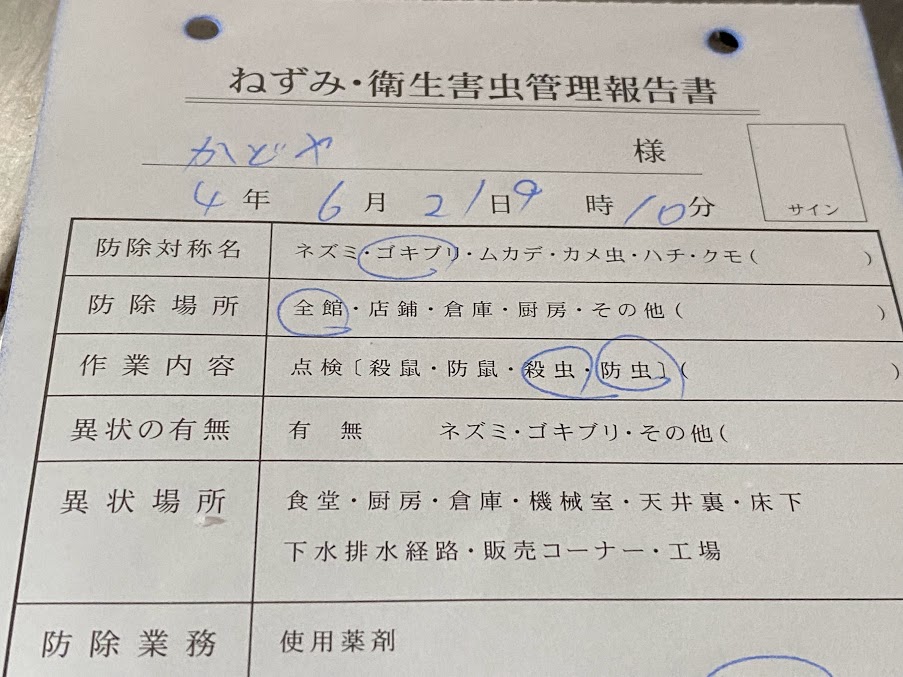 ねずみ・衛生害虫管理報告書
かどや 様
4年 6月 21日 9時 10分
サイン
防除対称名 ネズミ・ゴキブリ・ムカデ・カメ虫・ハチ・クモ( )
防除場所 全館・店鋪・倉庫・厨房・その他( )
作業内容 点検〔殺鼠・防鼠・殺虫・防虫〕( )
異状の有無 有 無 ネズミ・ゴキブリ・その他(
異状場所 食堂・厨房・倉庫・機械室・天井裏・床下
下水排水経路・販売コーナー・工場
防除業務 使用薬剤